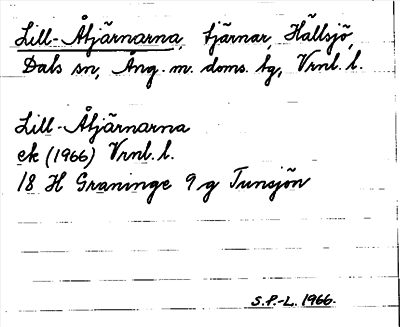 Lill-Åtjärnarna, tjärnar, Hällsjö,
Dals sn, Ång. m. doms. tg, Vrnl. l.
Lill-Åtjärnarna
ek (1966) Vrnl. l.
18 H Graninge 9 g Tunsjön
S.P.-L. 1966.